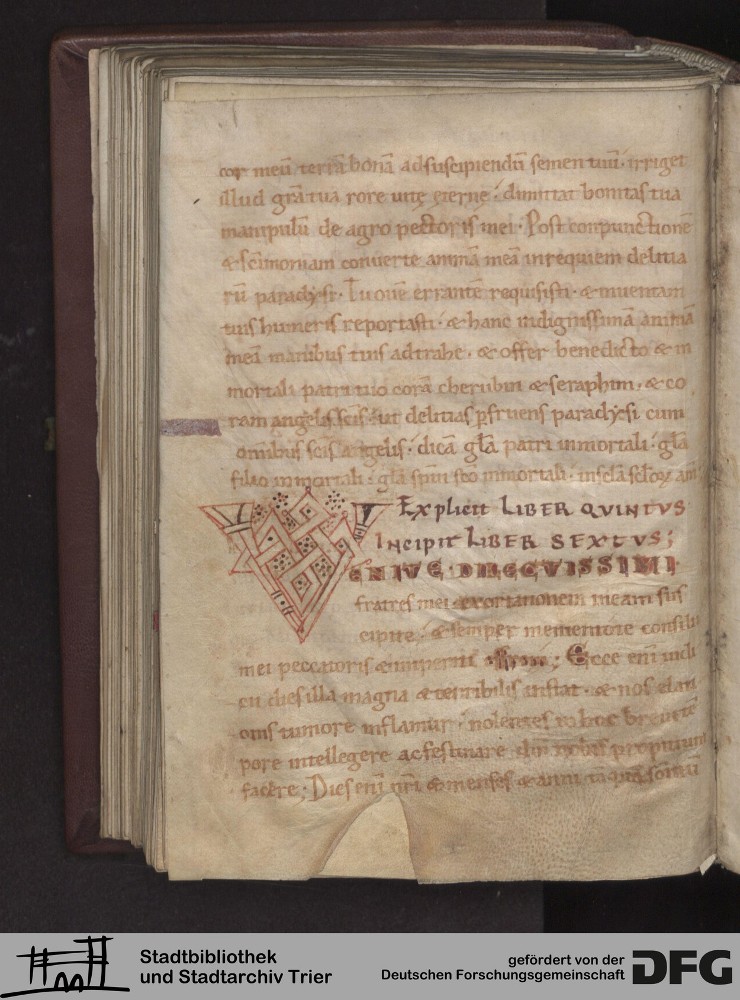 cor meū terrā bonā ad suscipiendū sementiuū· irriget
illud grā tua rore uitę eternę· dimittat bonitas tua
manipulū de agro pectoris mei· Post conpunctionē
& scīmoniam conuerte animā meā in requiem delitia
rū paradysi· Tu ouē errantē requisisti· & inuentam
tuis humeris reportasti· & hanc indignissimā animā
meā manibus tuis adtrahe· & offer benedicto & in
mortali patri tuo corā cherubin & seraphim· & co
ram angelis scīs· ut delitias pfruens paradysi cum
omībus scīs angelis· dicā glā patri inmortali· glā
filio inmortali· glā spui scō inmortali· in scla sclox am
Explicit LIBER QUINTUS
Incipit LIBER SEXTUS;
VENITE DILECTISSIMI
fratres mei exortationem meam sus
cipite· & semper mementote consilii
mei peccatoris & inperiti ; Ecce enī
cu dies illa magna & terribilis instat· & nos elati
onis tumore inflamur· nolentes in hoc breui tē
pore intellegere ac festinare dm̄ nobis propitium
facere; Dies enī nr̄i & menses & anni tāquā somniū
Stadtbibliothek
und Stadtarchiv Trier
gefördert von der
Deutschen Forschungsgemeinschaft
DFG